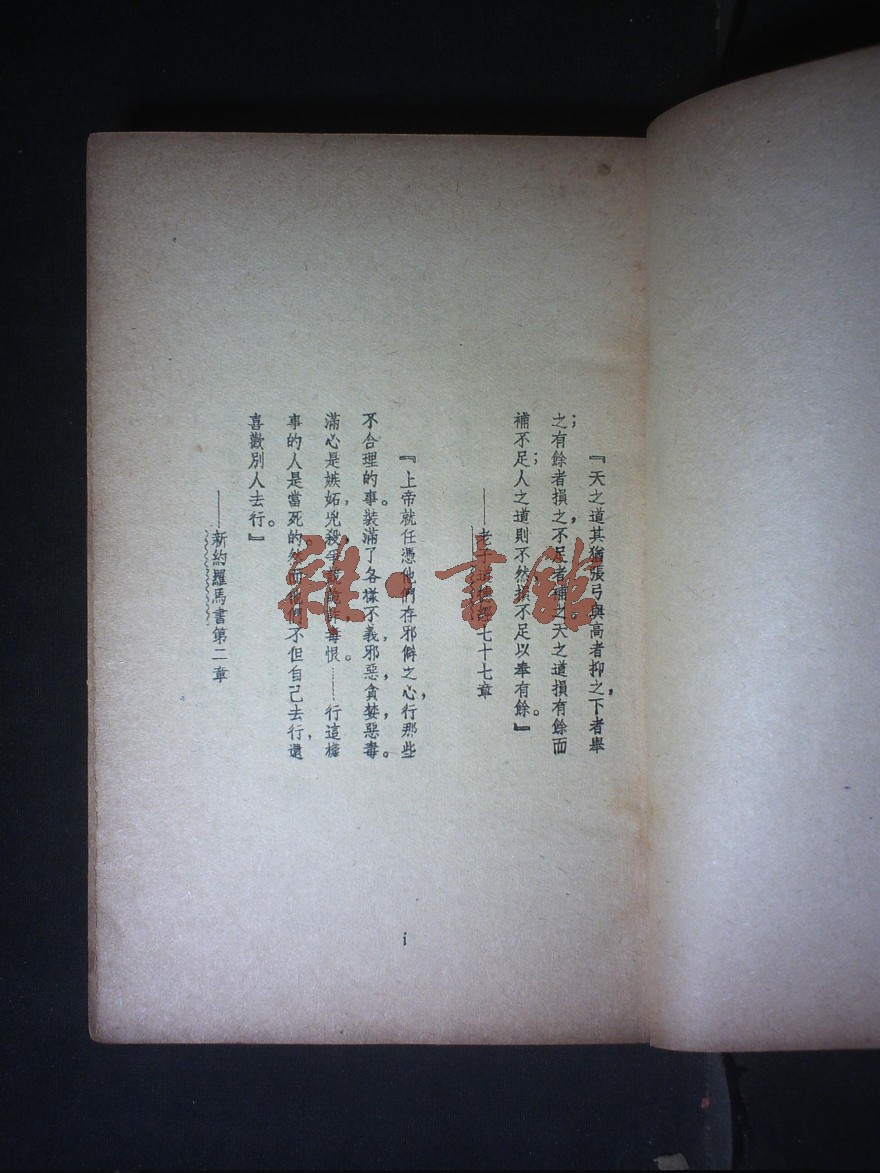 『天之道其猶張弓與高者抑之，下者舉
之；有餘者損之，不足者補之。天之道損有餘而
補不足；人之道則不然，損不足以奉有餘。』
——老子道德經七十七章
『上帝就任憑他們存邪僻之心，行那些
不合理的事。裝滿了各樣不義，邪惡，貪婪，惡毒。
滿心是嫉妬，兇殺，爭競，詭詐，毒恨。……行這樣
事的人是當死的。然而他們不但自己去行，還
喜歡別人去行。』
——新約羅馬書第二章
i
雜·書館